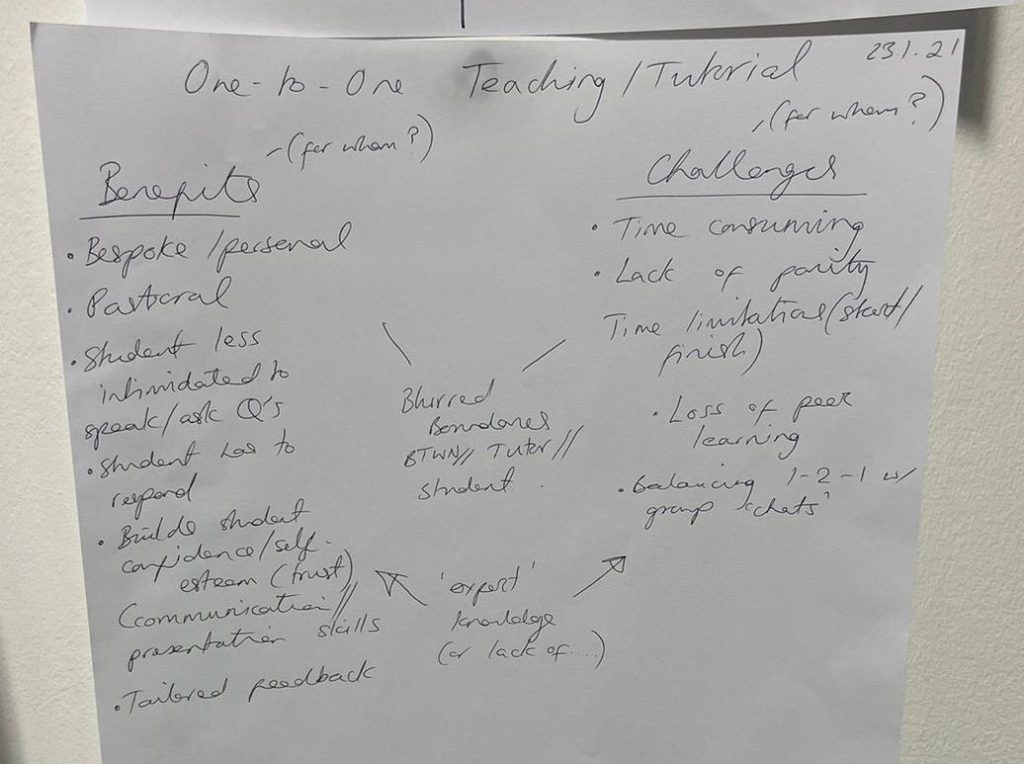 One-to-One Teaching/Tutorial
231.21
-(for whom?)
Benefits
• Bespoke/personal
• Pastoral
• Student less
intimidated to
speak/ask Q's
• Student has to
respond
• Builds student
confidence/self-
esteem (trust)
Communication//
presentation skills
• Tailored feedback
Blurred
Boundaries
BTWN// Tutor//
student.
'expert'
knowledge
(or lack of....)
-(for whom?)
Challenges
• Time consuming
• Lack of parity
Time limitations (start/
finish)
• Loss of peer
learning
• Balancing 1-2-1 w/
group 'chats'